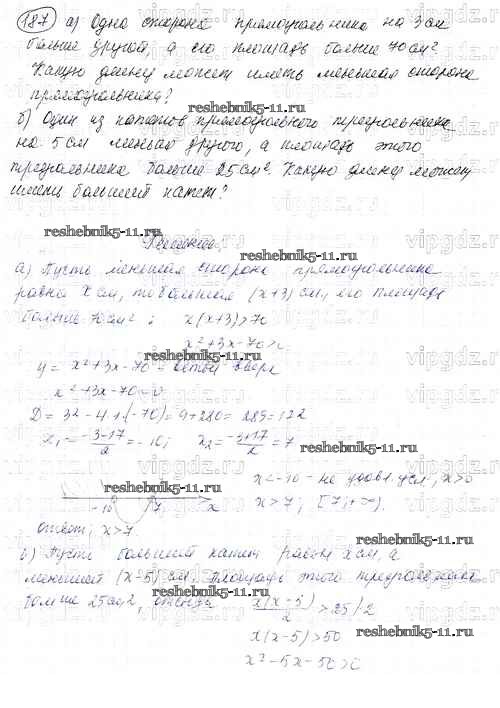 187 а) Одна сторона прямоугольника на 3 см
больше другой, а его площадь больше 70 см²
Какую длину может иметь меньшая сторона
прямоугольника?
reshebnik5-11.ru
б) Один из катетов прямоугольного треугольника
на 5 см меньше другого, а площадь этого
треугольника больше 25 см². Какую длину может
иметь больший катет?
reshebnik5-11.ru
Решение
а) Пусть меньшая сторона прямоугольника
равна x см, то большая (x+3) см, его площадь
больше 70 см²: x(x+3)>70
x²+3x-70>0
reshebnik5-11.ru
y = x²+3x-70 - ветви вверх
x²+3x-70=0
D = 3²-4·1·(-70) = 9+280 = 289=172
x₁ = -3-17/2 = -10; x₂ = -3+17/2 = 7
reshebnik5-11.ru
x<-10 - не удов. усл, x>0
reshebnik5-11.ru
-10 7 x
x>7; [7;+∞).
ответ: x>7
reshebnik5-11.ru
б) Пусть больший катет равен x см, а
меньший (x-5) см. Площадь этого треугольника
reshebnik5-11.ru
больше 25 см², откуда x(x-5)/2 >25 /2
x(x-5)>50
reshebnik5-11.ru
x²-5x-50>0